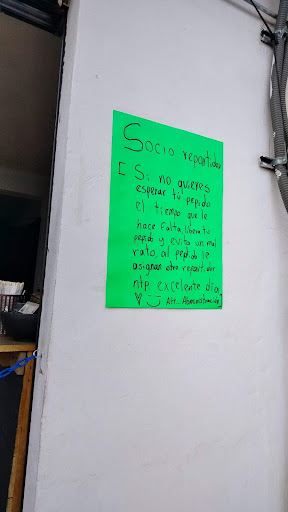 Socio repartidor
[ Si no quieres
esperar tu pepido
el tiempo que le
hace falta, libera tu
pepido y evita un mal
rato, al pepido le
asignas otro repartidor
ntp excelente día
Att... Administración